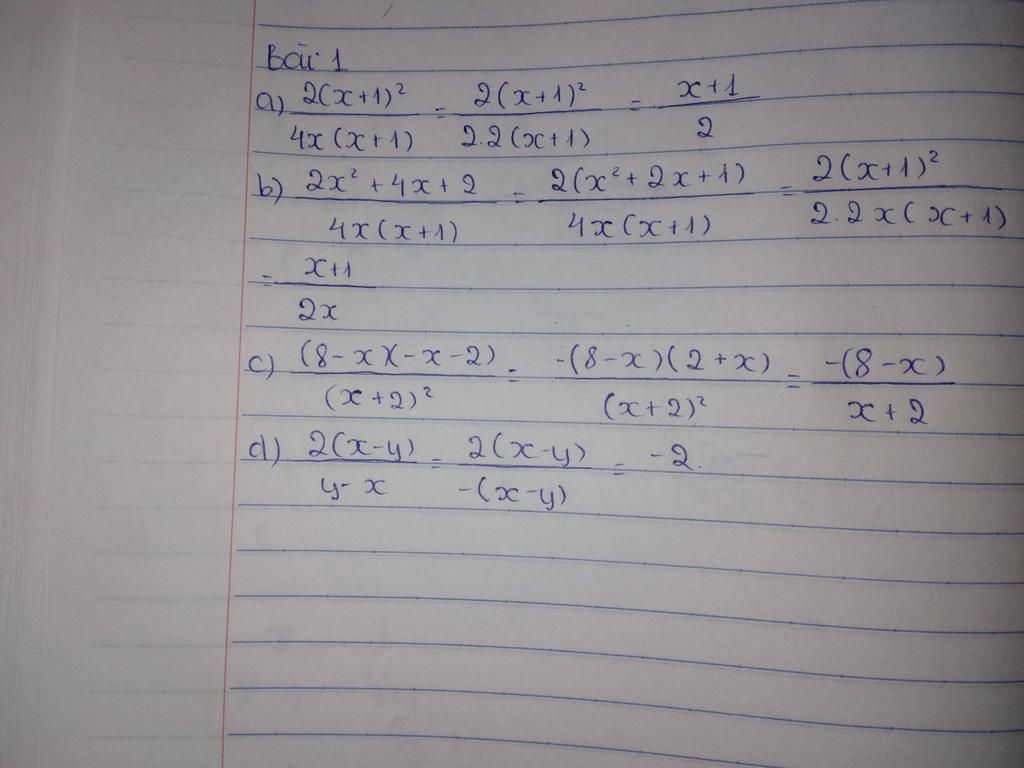 Bài 1
a) 2(x+1)² / 4x(x+1) = 2(x+1)² / 2.2(x+1) = x+1 / 2
b) 2x² + 4x + 2 / 4x(x+1) = 2(x² + 2x + 1) / 4x(x+1) = 2(x+1)² / 2.2x(x+1)
= x+1 / 2x
c) (8-x)(-x-2) / (x+2)² = -(8-x)(2+x) / (x+2)² = -(8-x) / x+2
d) 2(x-y) / y-x = 2(x-y) / -(x-y) = -2.